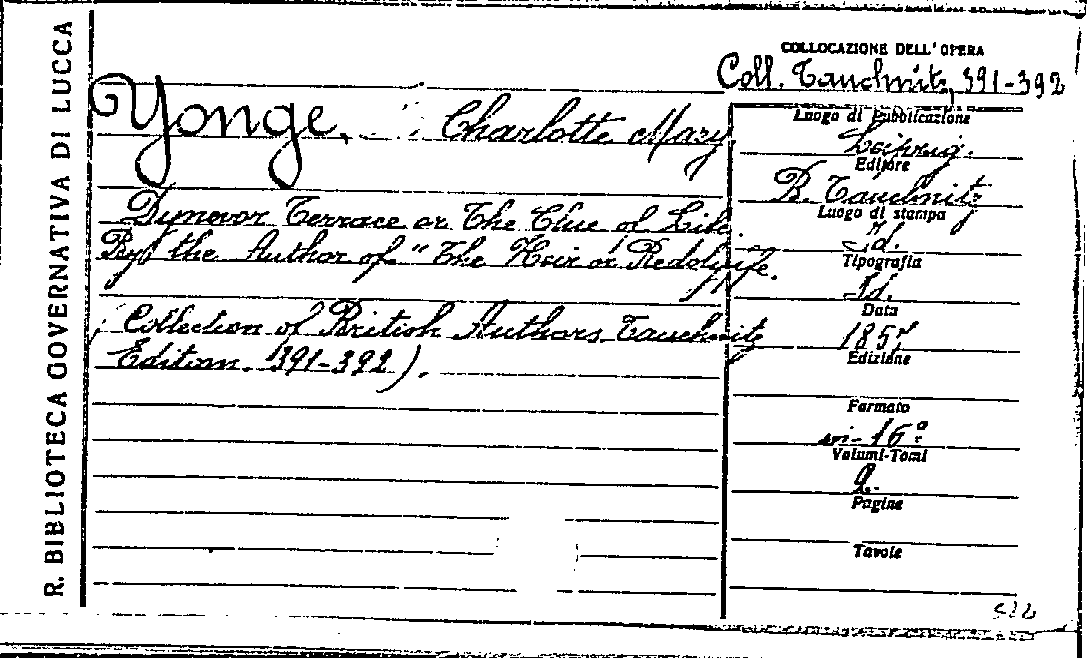 R. BIBLIOTECA GOVERNATIVA DI LUCCA
COLLOCAZIONE DELL'OPERA
Coll. Tauchnitz, 391-392
Yonge, Charlotte Mary
Dynevor Terrace or The Clue of Life.
By the Author of "The Heir of Redclyffe.
(Collection of British Authors Tauchnitz
Edition. 391-392).
Luogo di Pubblicazione
Leipzig.
Editore
B. Tauchnitz
Luogo di stampa
Id.
Tipografia
Id.
Data
1857
Edizione
Formato
in-16º
Volumi-Tomi
2.
Pagine
Tavole